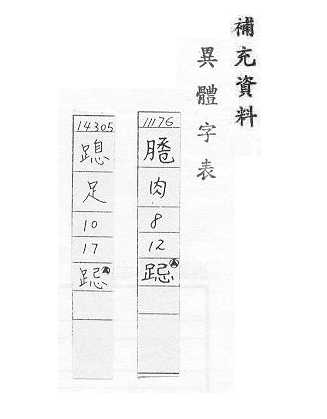 補充資料
異體字表
11176
肉
8
12
跽
14305
足
10
17
跽